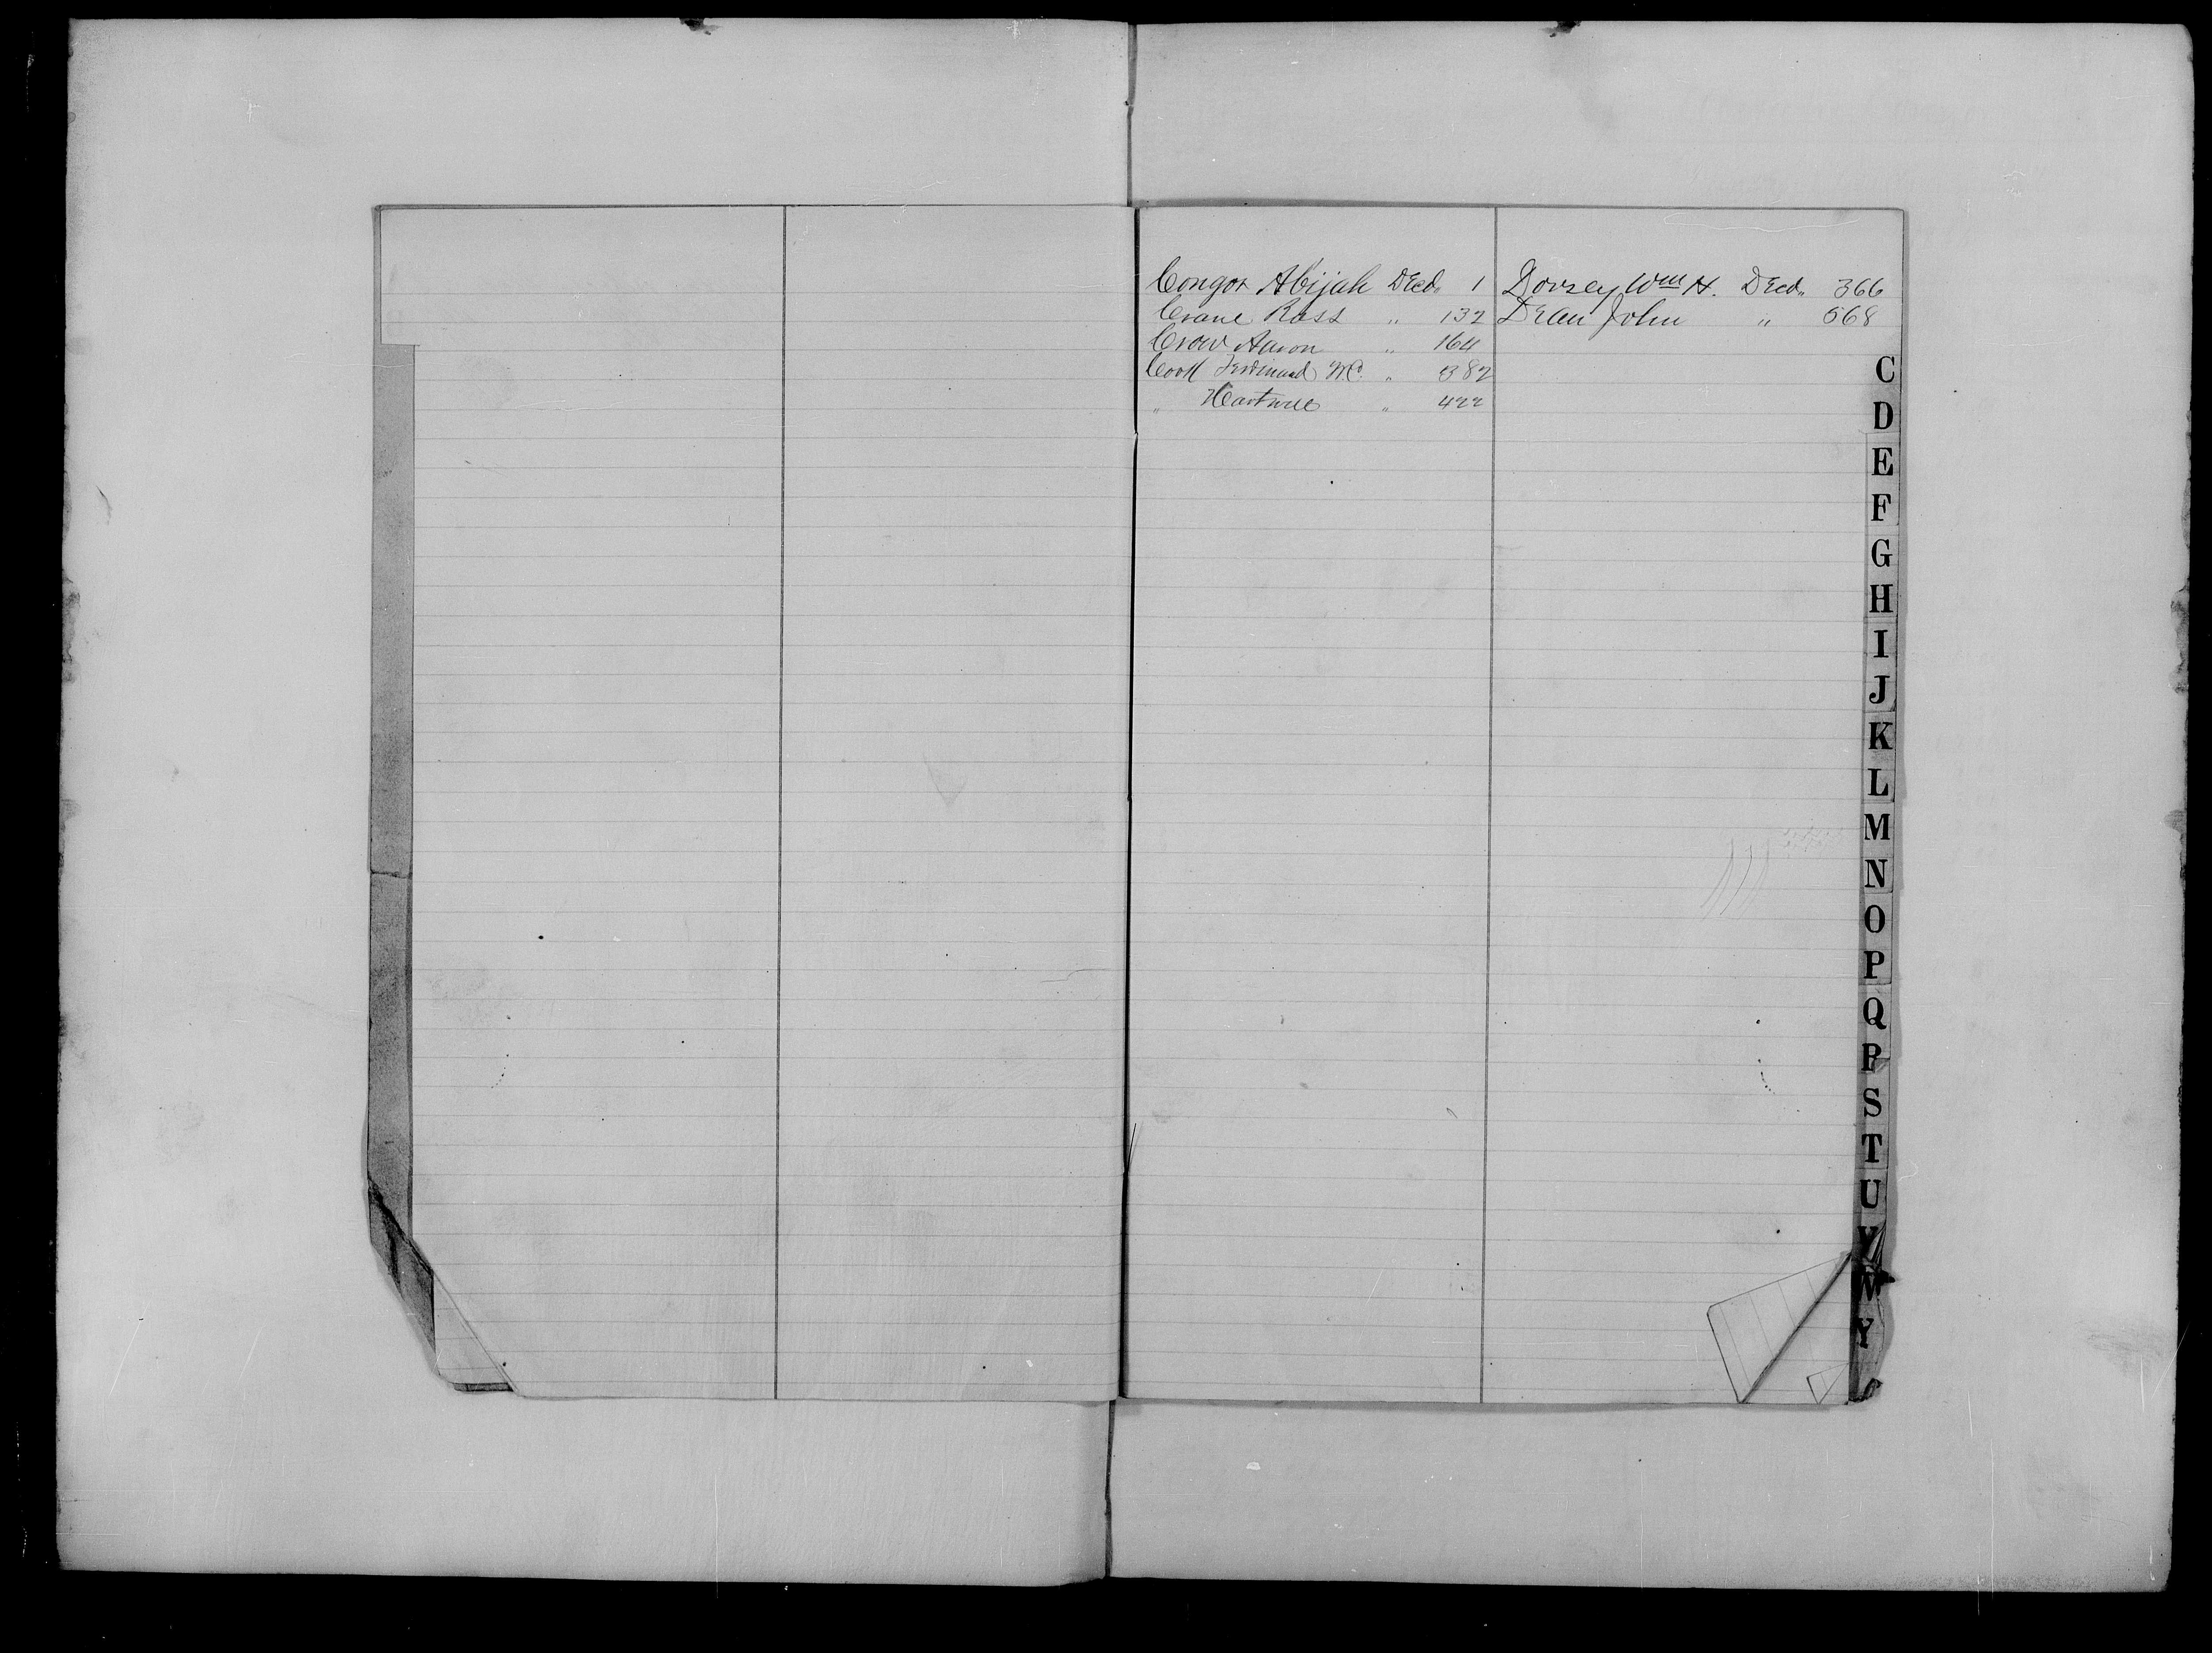 Congor Abijah Decd. 1
Crane Ross " 132
Crow Aaron " 164
Cook Ferdinand M.C. " 382
" Hartwell " 422
Dorsey Wm H. Decd. 366
Dean John " 568
C
D
E
F
G
H
I
J
K
L
M
N
O
P
Q
R
S
T
U
V
W
Y